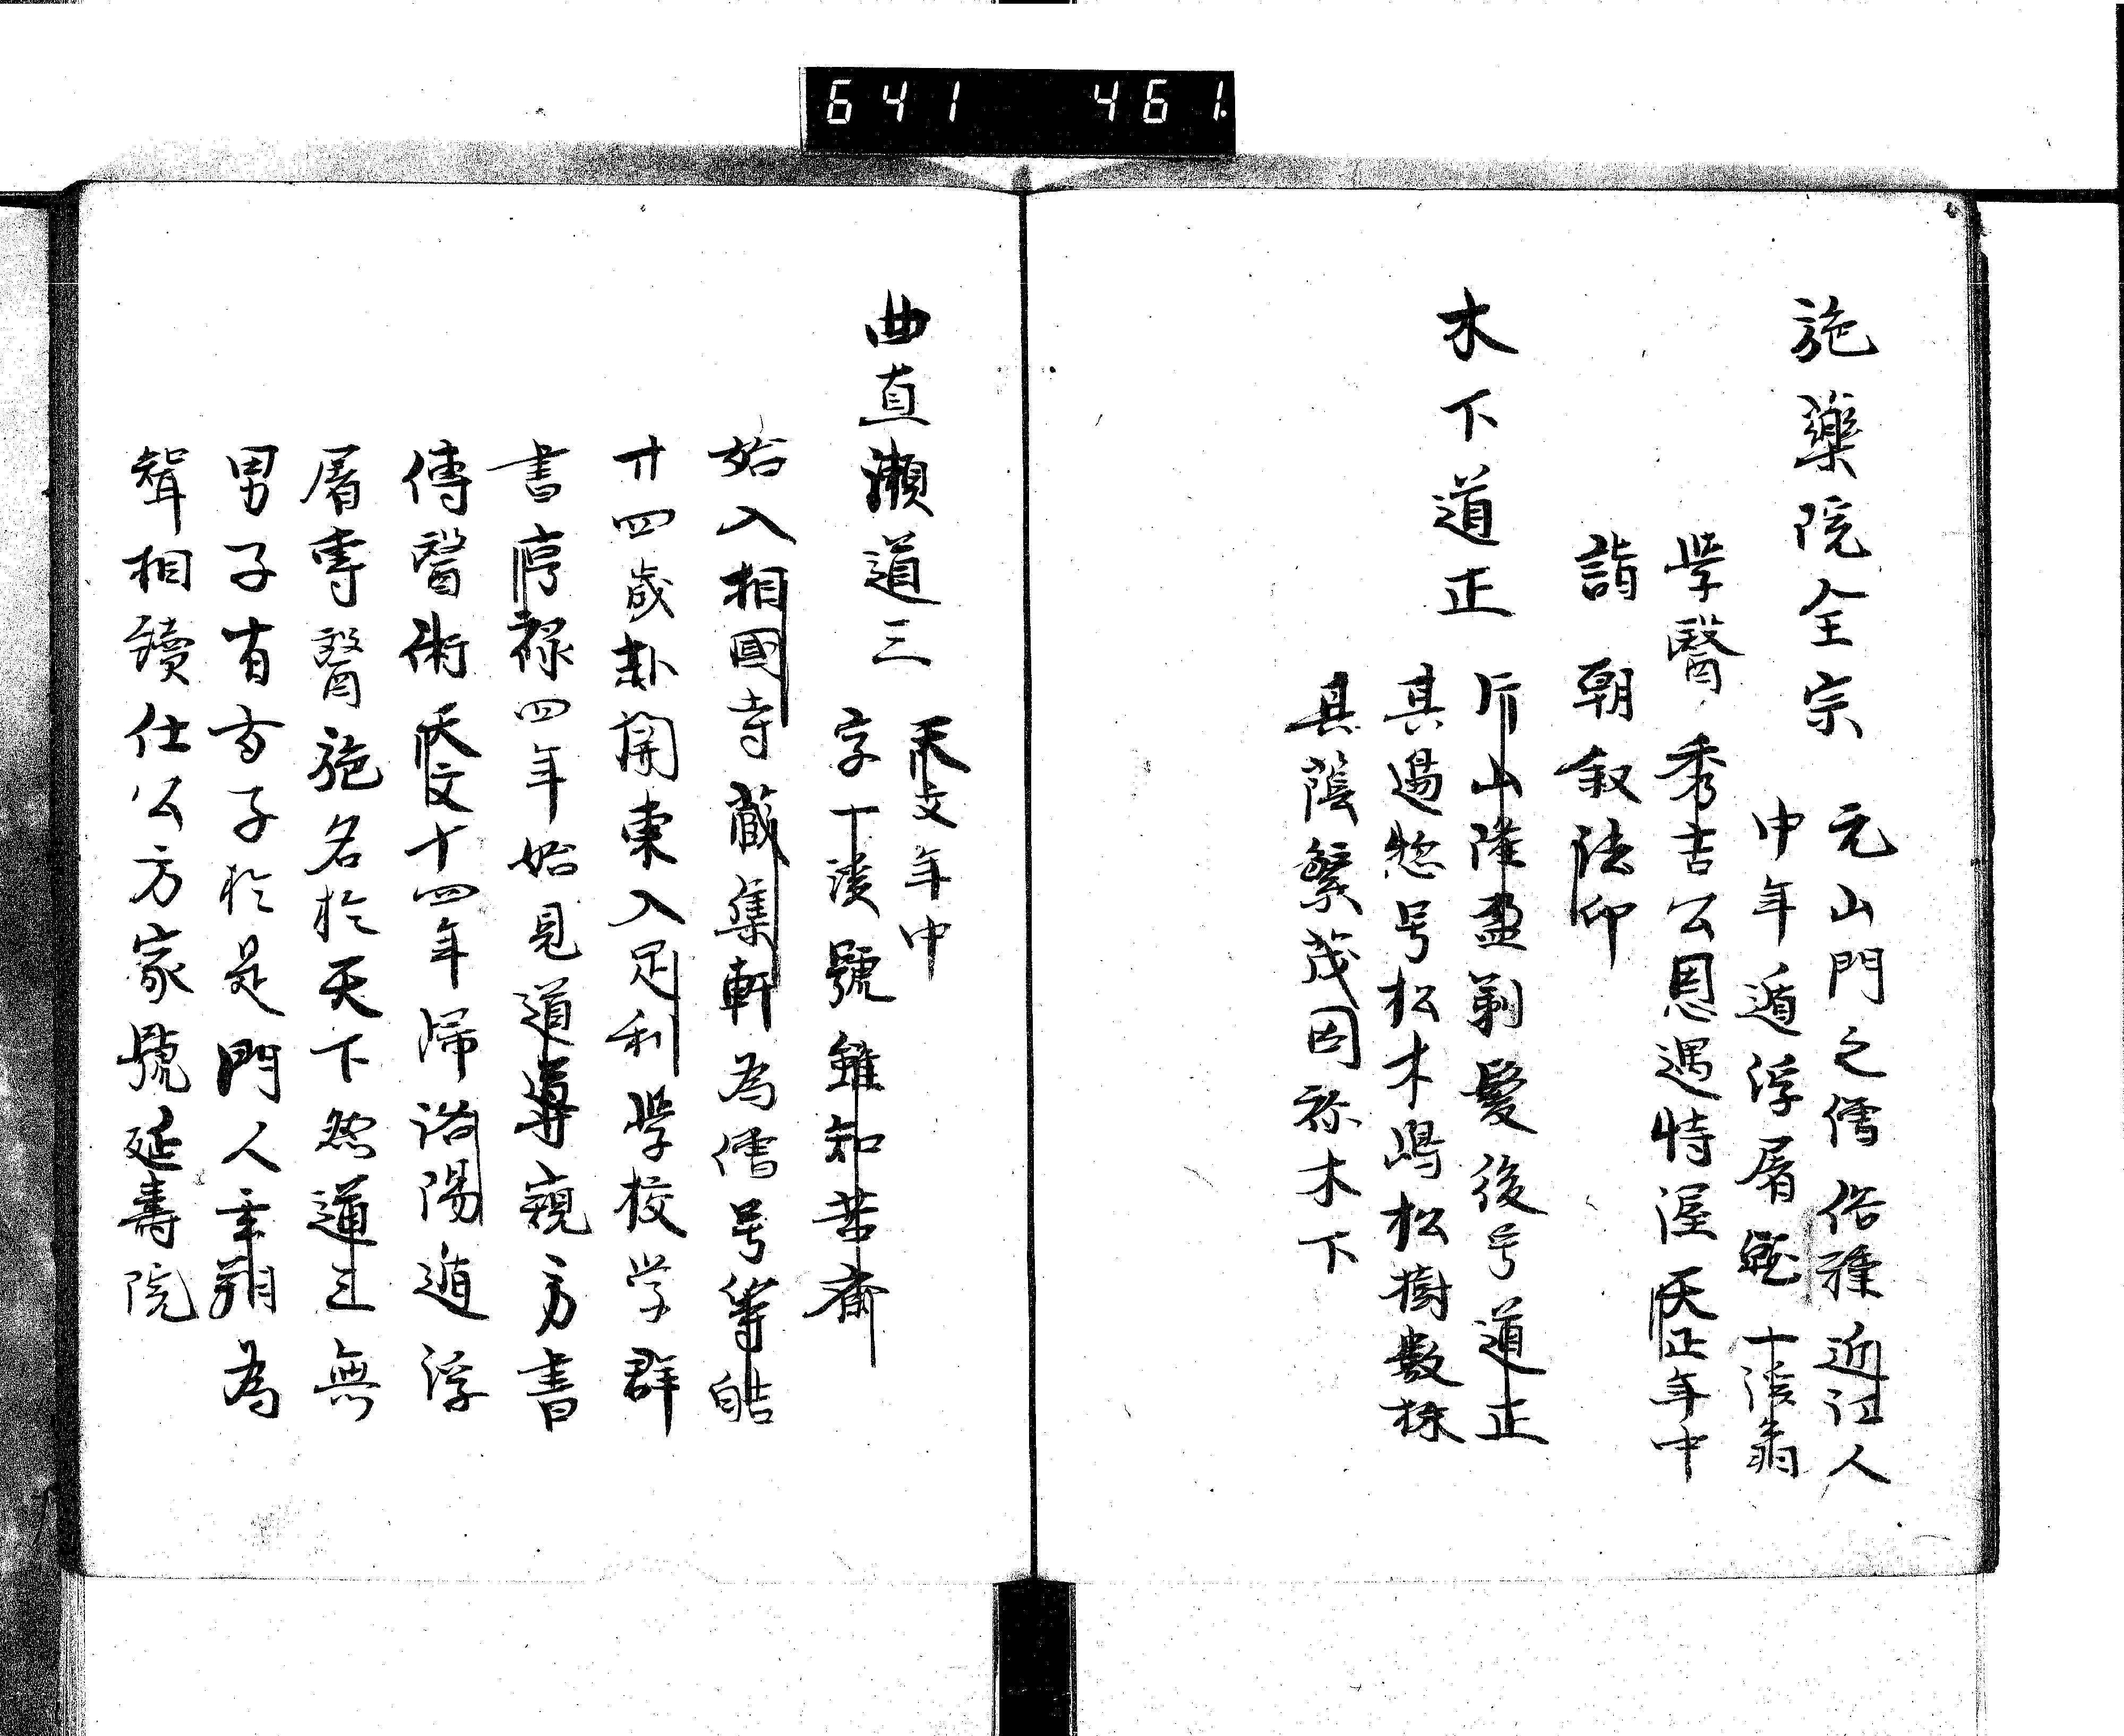 641 461.
施藥院全宗
元山門之僧俗種近江人
中年遁浮屠號一渓翁
学醫秀吉公恩遇特渥天正年中
詣朝叙法印
木下道正
片山隆盈剃髪後号道正
其過愁号松木嶋松樹数株
其蔭繁茂因称木下
曲直瀬道三
天文年中
字一渓號雖知苦斎
始入相國寺蔵集軒為僧号等皓
廾四歳赴関東入足利学校学群
書享禄四年始見道導窺方書
傳醫術天文十四年帰洛陽遁浮
屠専醫施名於天下然道三無
男子有女子於是門人玄朔為
聟相續仕公方家號延壽院